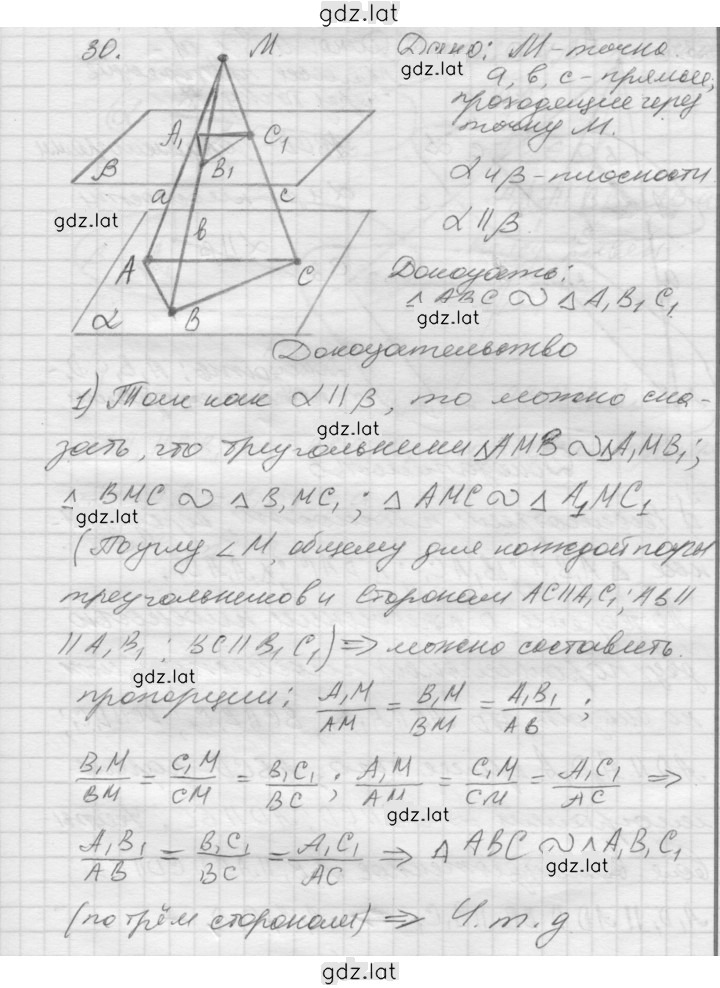 gdz.lat
30.
M
Дано: M - точка.
gdz.lat
a, b, c - прямые,
проходящие через
точку M.
A₁ C₁
B₁
β
a c
α и β - плоскости
gdz.lat
b
α ∥ β
A C
B
α
Доказать:
△ABC ∾ △A₁B₁C₁
gdz.lat
Доказательство
1) Так как α ∥ β, то можно ска-
gdz.lat
зать, что треугольники △AMB ∾ △A₁MB₁;
△BMC ∾ △B₁MC₁; △AMC ∾ △A₁MC₁
gdz.lat
(По углу ∠M, общему для каждой пары
треугольников и сторонам AC∥A₁C₁; AB∥
∥A₁B₁; BC∥B₁C₁) ⇒ можно составить
gdz.lat
пропорции: A₁M/AM = B₁M/BM = A₁B₁/AB;
B₁M/BM = C₁M/CM = B₁C₁/BC; A₁M/AM = C₁M/CM = A₁C₁/AC ⇒
gdz.lat
A₁B₁/AB = B₁C₁/BC = A₁C₁/AC ⇒ △ABC ∾ △A₁B₁C₁
gdz.lat
(по трём сторонам) ⇒ Ч.т.д
gdz.lat